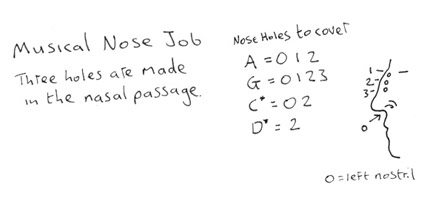 Musical Nose Job
Three holes are made
in the nasal passage.
Nose Holes to cover
A = 0 1 2
G = 0 1 2 3
C* = 0 2
D* = 2
1
2
3
0
0 = left nostril